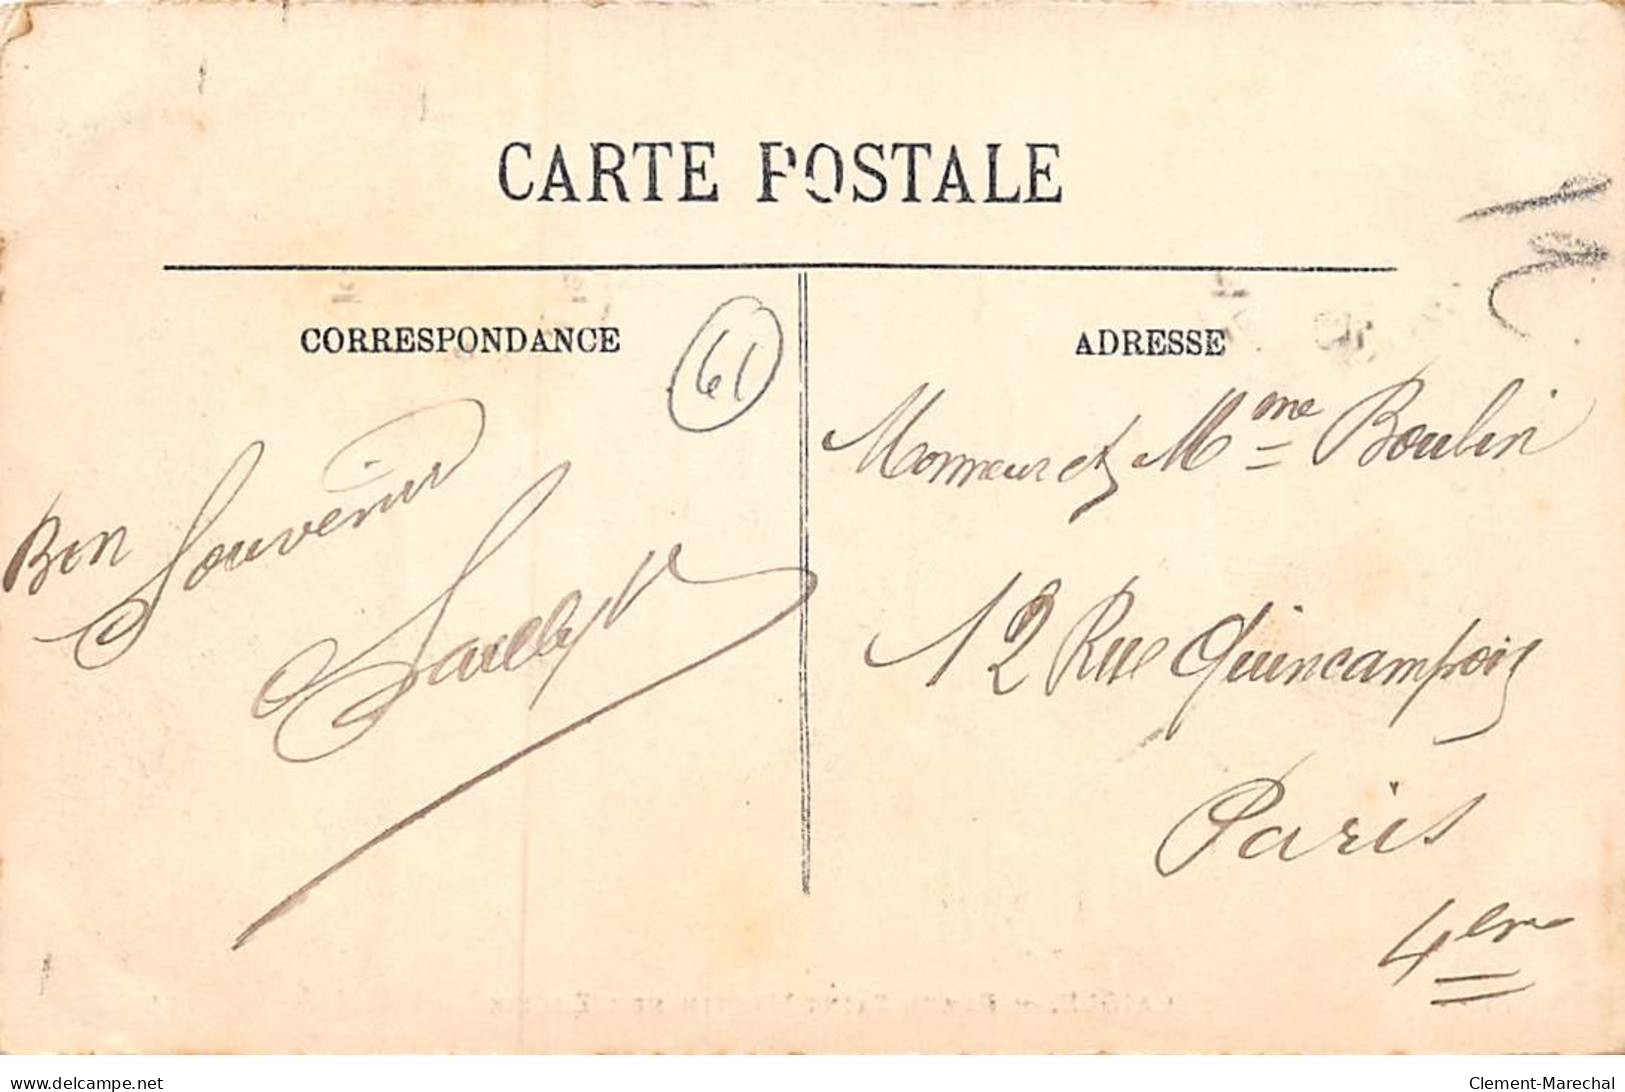 CARTE POSTALE
CORRESPONDANCE
61
Bon Souvenir
ADRESSE
Monsieur et Mme Boulin
12 Rue Quincampoix
Paris
4em
delcampe.net
Clement-Marechal